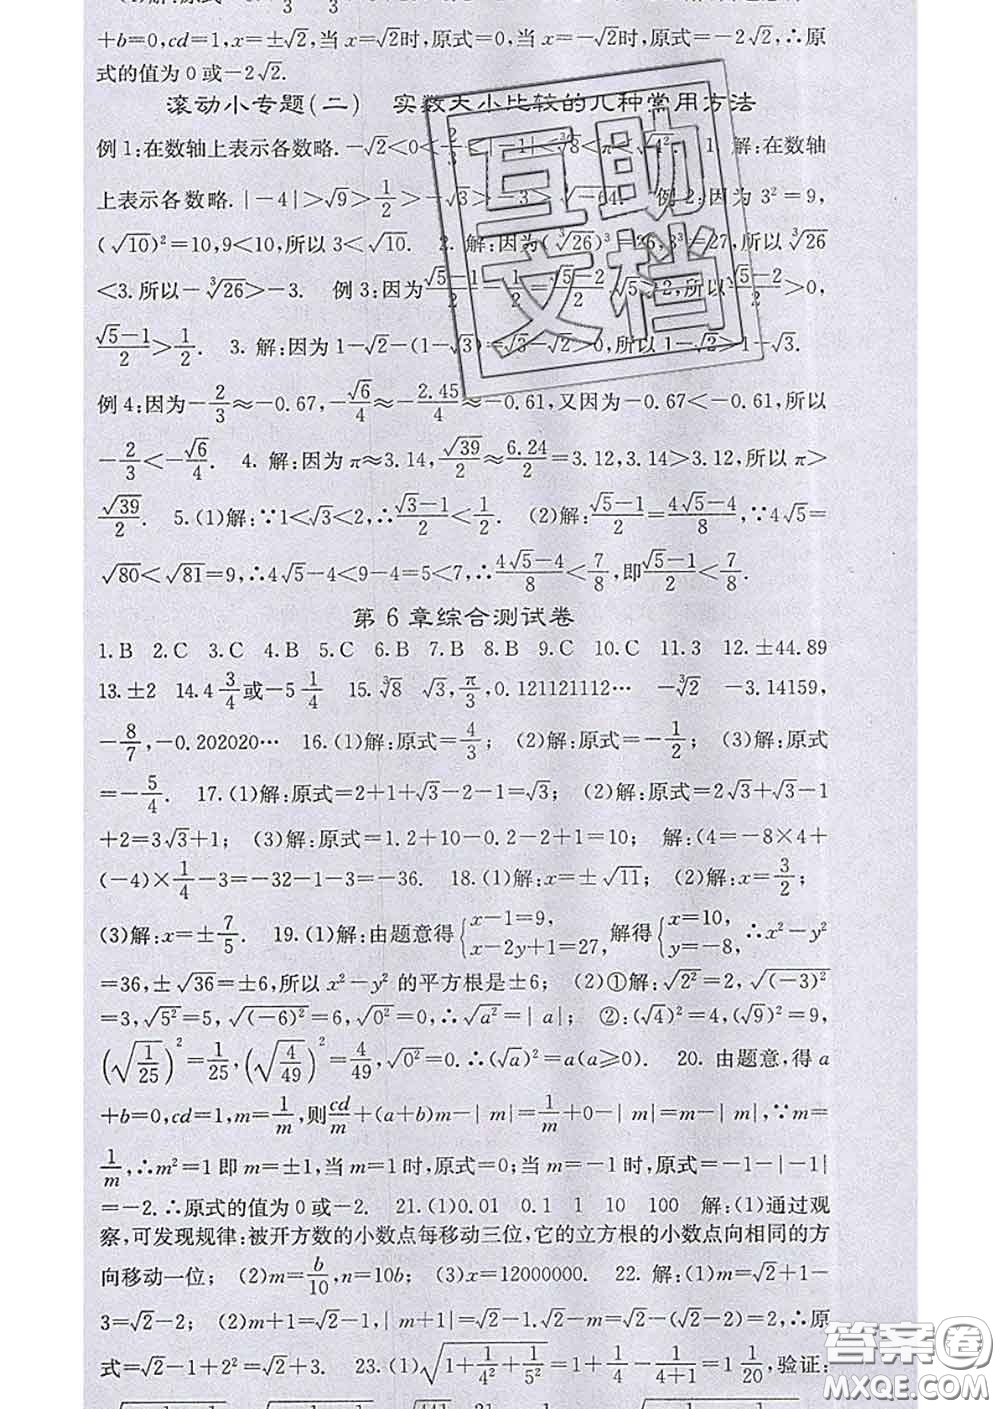 +b=0,cd=1,x=±√2,当x=√2时,原式=0,当x=-√2时,原式=-2√2,∴原
式的值为0或-2√2.
滚动小专题(二) 实数大小比较的几种常用方法
例1:在数轴上表示各数略.-√2<0<2/3<|-1|<∛8<π<√4². 1. 解:在数轴
上表示各数略.|-4|>√9>1/2>-√3>-3>∛-64. 例2:因为3²=9,
(√10)²=10,9<10,所以3<√10. 2. 解:因为(∛26)³=26,3³=27,所以∛26
<3.所以-∛26>-3. 例3:因为(√5-1)/2-1/2=(√5-2)/2,√5>2,所以(√5-2)/2>0,
(√5-1)/2>1/2. 3. 解:因为1-√2-(1-√3)=√3-√2>0,所以1-√2>1-√3.
例4:因为-2/3≈-0.67,-√6/4≈-2.45/4≈-0.61,又因为-0.67<-0.61,所以
-2/3<-√6/4. 4. 解:因为π≈3.14,√39/2≈6.24/2=3.12,3.14>3.12,所以π>
√39/2. 5.(1)解:∵1<√3<2,∴(√3-1)/2<1/2. (2)解:(√5-1)/2=(4√5-4)/8,∵4√5=
√80<√81=9,∴4√5-4<9-4=5<7,∴(4√5-4)/8<7/8,即(√5-1)/2<7/8.
第6章综合测试卷
1.B 2.C 3.C 4.B 5.C 6.B 7.B 8.B 9.C 10.C 11.3 12.±44.89
13.±2 14.4 3/4或-5 1/4 15.∛8 √3,π/3,0.121121112… -∛2 -3.14159,
-8/7,-0.202020… 16.(1)解:原式=4/3; (2)解:原式=-1/2; (3)解:原式
=-5/4. 17.(1)解:原式=2+1+√3-2-1=√3; (2)解:原式=2√3+√3-1
+2=3√3+1; (3)解:原式=1.2+10-0.2-2+1=10; 解:(4=-8×4+
(-4)×1/4-3=-32-1-3=-36. 18.(1)解:x=±√11; (2)解:x=3/2;
(3)解:x=±7/5. 19.(1)解:由题意得{x-1=9, x-2y+1=27, 解得{x=10, y=-8, ∴x²-y²
=36,±√36=±6,所以x²-y²的平方根是±6; (2)①解:√2²=2,√(-3)²
=3,√5²=5,√(-6)²=6,√0²=0,∴√a²=|a|; ②:(√4)²=4,(√9)²=9,
(√(1/25))²=1/25,(√(4/49))²=4/49,√0²=0.∴(√a)²=a(a≥0). 20. 由题意,得a
+b=0,cd=1,m=1/m,则cd/m+(a+b)m-|m|=1/m+0-|m|=m-|m|,∵m=
1/m,∴m²=1即m=±1,当m=1时,原式=0;当m=-1时,原式=-1-|-1|
=-2.∴原式的值为0或-2. 21.(1)0.01 0.1 1 10 100 解:(1)通过观
察,可发现规律:被开方数的小数点每移动三位,它的立方根的小数点向相同的方
向移动一位; (2)m=b/10,n=10b; (3)x=12000000. 22. 解:(1)m=√2+1-
3=√2-2; (2)m+1=√2-1,|m+1|=√2-1.√2-m=√2-(√2-2)=2,∴原
式=√2-1+2²=√2+3. 23.(1)√(1+1/4²+1/5²)=1+1/4-1/(4+1)=1 1/20,验证:
互助
文档
答案圈
MXQE.COM